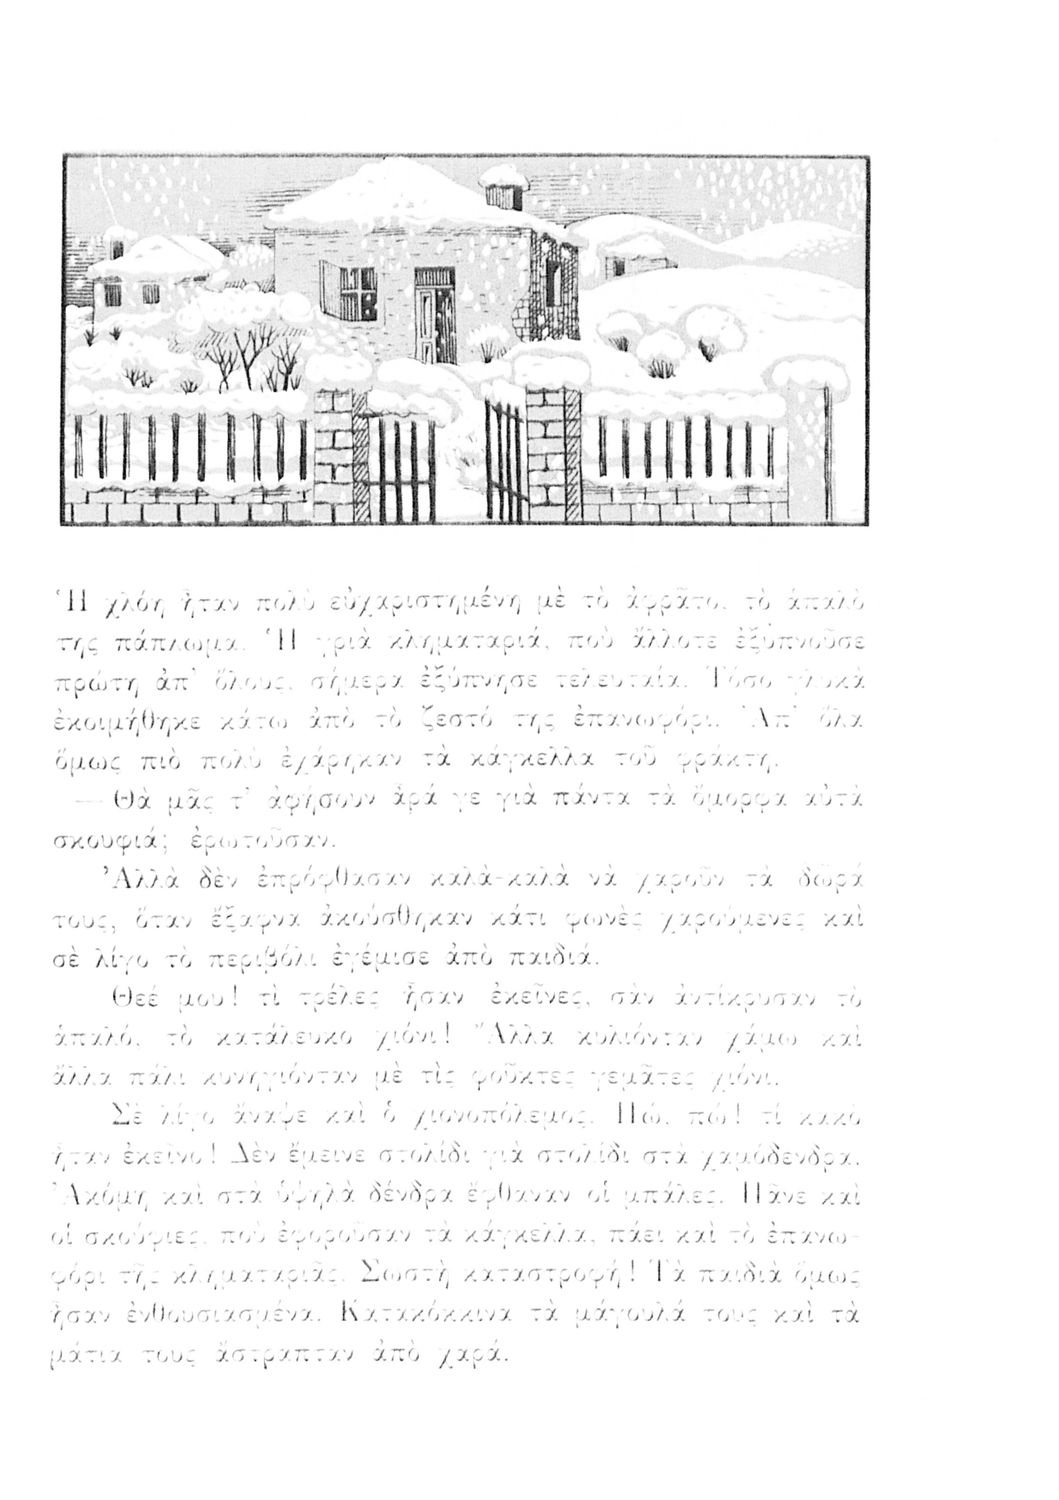 Ἡ χλόη ἦταν πολὺ εὐχαριστημένη μὲ τὸ ἀφρᾶτο, τὸ ἁπαλὸ
της πάπλωμα. Ἡ γριὰ κληματαριά, ποὺ ἄλλοτε ἐξυπνοῦσε
πρώτη ἀπ' ὅλους, σήμερα ἐξύπνησε τελευταία. Τόσο γλυκὰ
ἐκοιμήθηκε κάτω ἀπὸ τὸ ζεστό της ἐπανωφόρι. Ἀπ' ὅλα
ὅμως πιὸ πολὺ ἐχάρηκαν τὰ κάγκελλα τοῦ φράκτη.
— Θὰ μᾶς τ' ἀφήσουν ἆρά γε γιὰ πάντα τὰ ὄμορφα αὐτὰ
σκουφιά; ἐρωτοῦσαν.
Ἀλλὰ δὲν ἐπρόφθασαν καλὰ-καλὰ νὰ χαροῦν τὰ δῶρά
τους, ὅταν ἔξαφνα ἀκούσθηκαν κάτι φωνὲς χαρούμενες καὶ
σὲ λίγο τὸ περιβόλι ἐγέμισε ἀπὸ παιδιά.
Θεέ μου! τὶ τρέλες ἦσαν ἐκεῖνες, σὰν ἀντίκρυσαν τὸ
ἁπαλό, τὸ κατάλευκο χιόνι! Ἄλλα κυλιόνταν χάμω καὶ
ἄλλα πάλι κυνηγιόνταν μὲ τὶς φοῦκτες γεμᾶτες χιόνι.
Σὲ λίγο ἄναψε καὶ ὁ χιονοπόλεμος. Πώ, πώ! τί κακὸ
ἦταν ἐκεῖνο! Δὲν ἔμεινε στολίδι γιὰ στολίδι στὰ χαμόδενδρα.
Ἀκόμη καὶ στὰ ὑψηλὰ δένδρα ἔφθαναν οἱ μπάλες. Πᾶνε καὶ
οἱ σκούφιες, ποὺ ἐφοροῦσαν τὰ κάγκελλα, πάει καὶ τὸ ἐπανω-
φόρι τῆς κληματαριᾶς. Σωστὴ καταστροφή! Τὰ παιδιὰ ὅμως
ἦσαν ἐνθουσιασμένα. Κατακόκκινα τὰ μάγουλά τους καὶ τὰ
μάτια τους ἄστραπταν ἀπὸ χαρά.